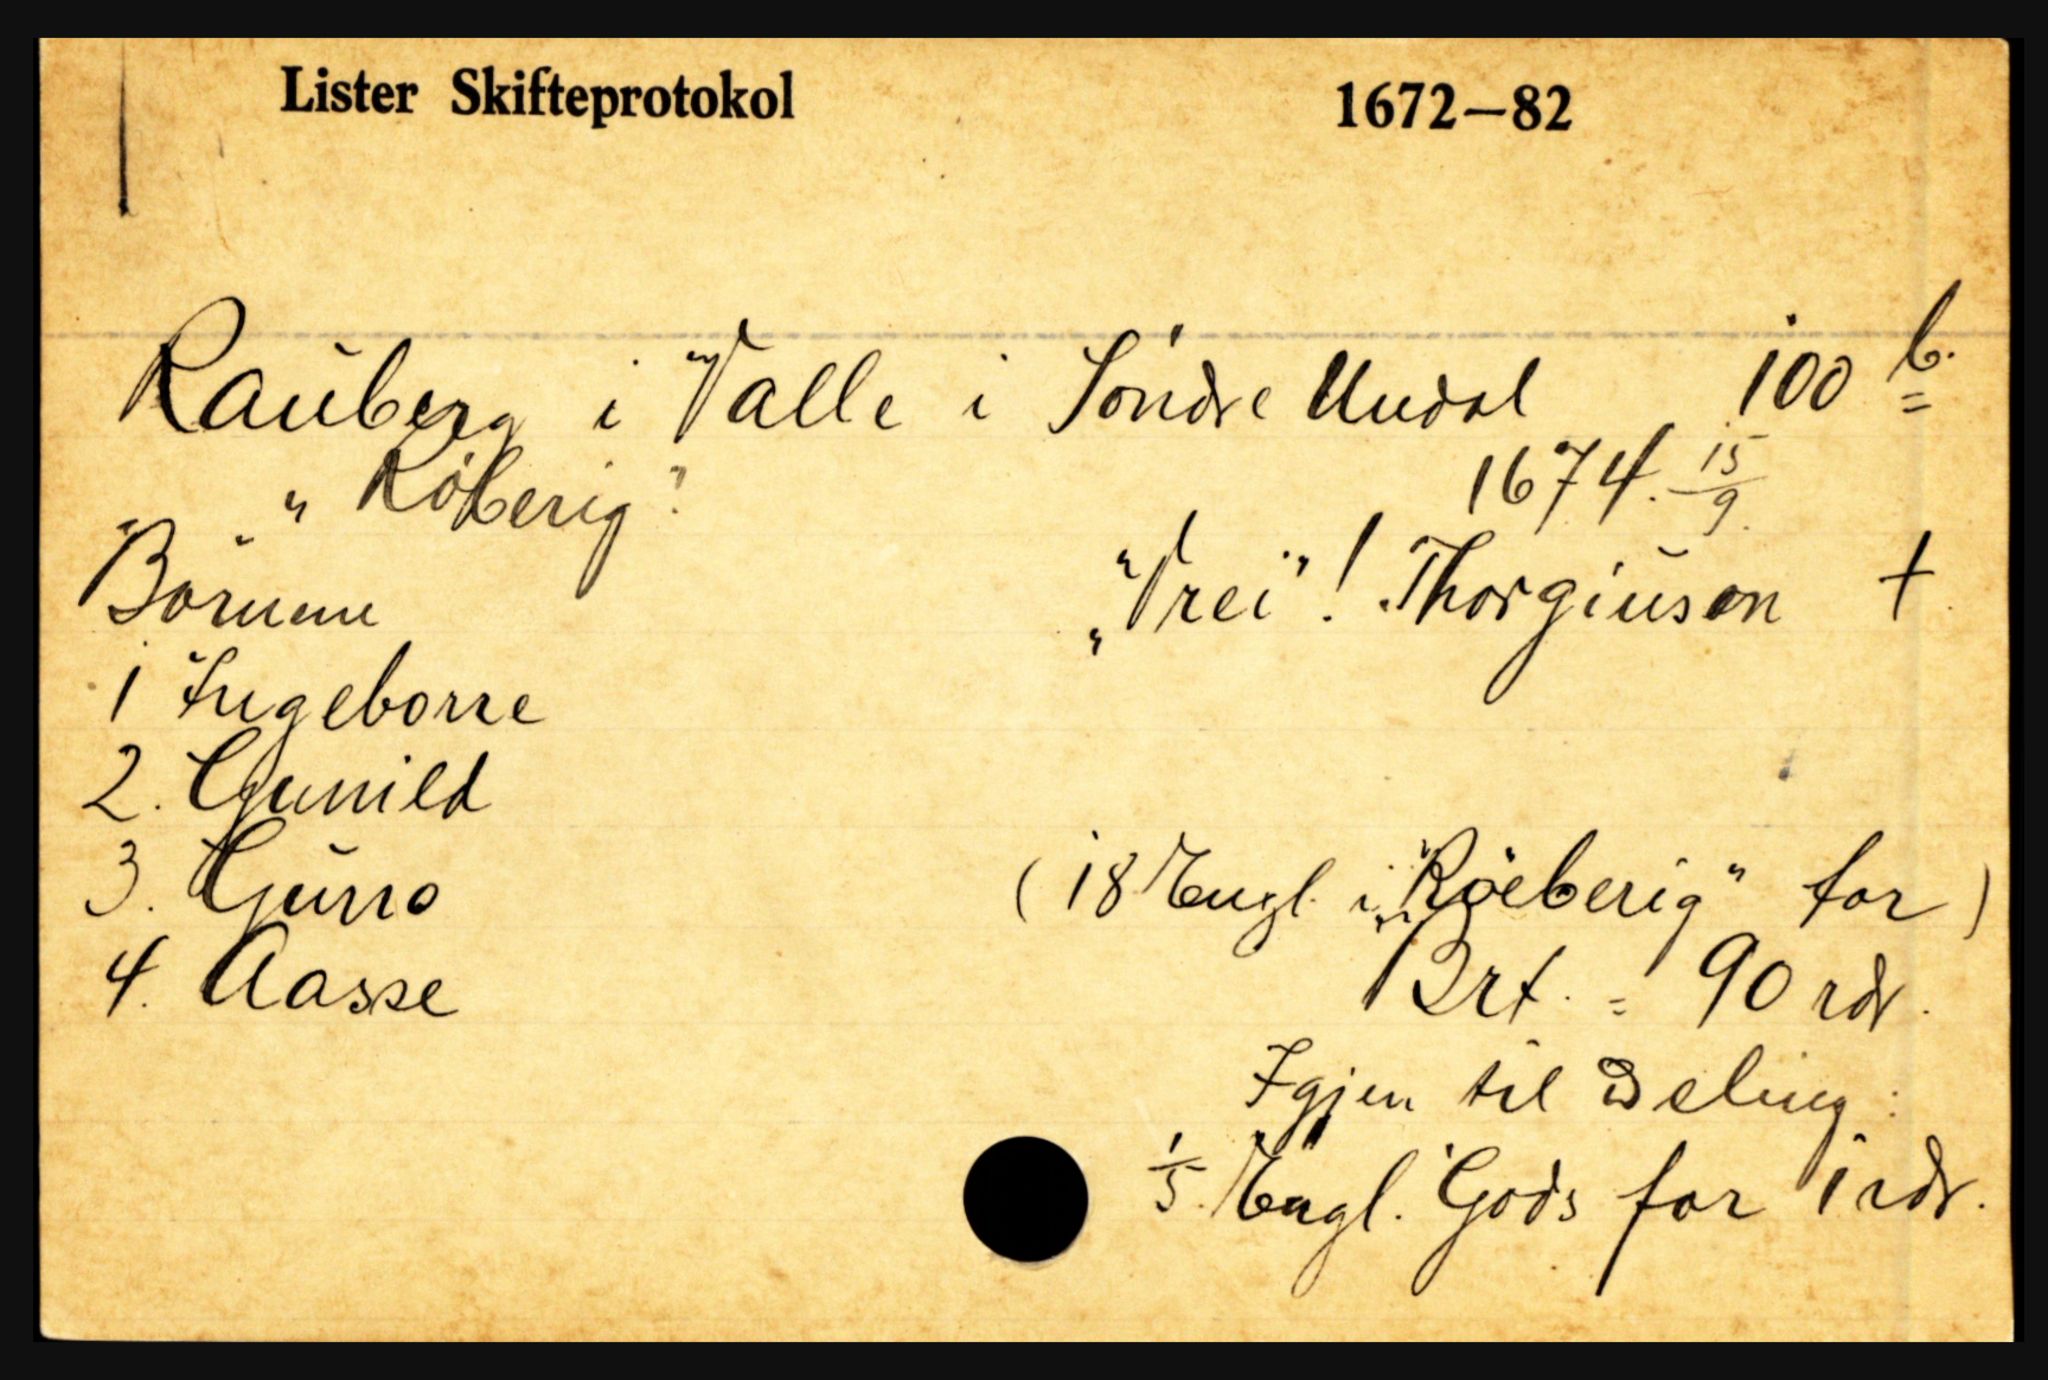 Lister Skifteprotokol 1672–82
Rauberg i Valle i Söndre Undal 100 b.
"Röberig"
1674. 15/9.
Börnene
"Vrei"! Thorgiusøn †
1 Ingeborre
2. Gunild
3. Gurro
4. Aasse
(18 Engl. i "Röeberig" for)
Brt. = 90 rdr.
Igjen til Deling:
1/5 Engl. Gods for 1 rdr.